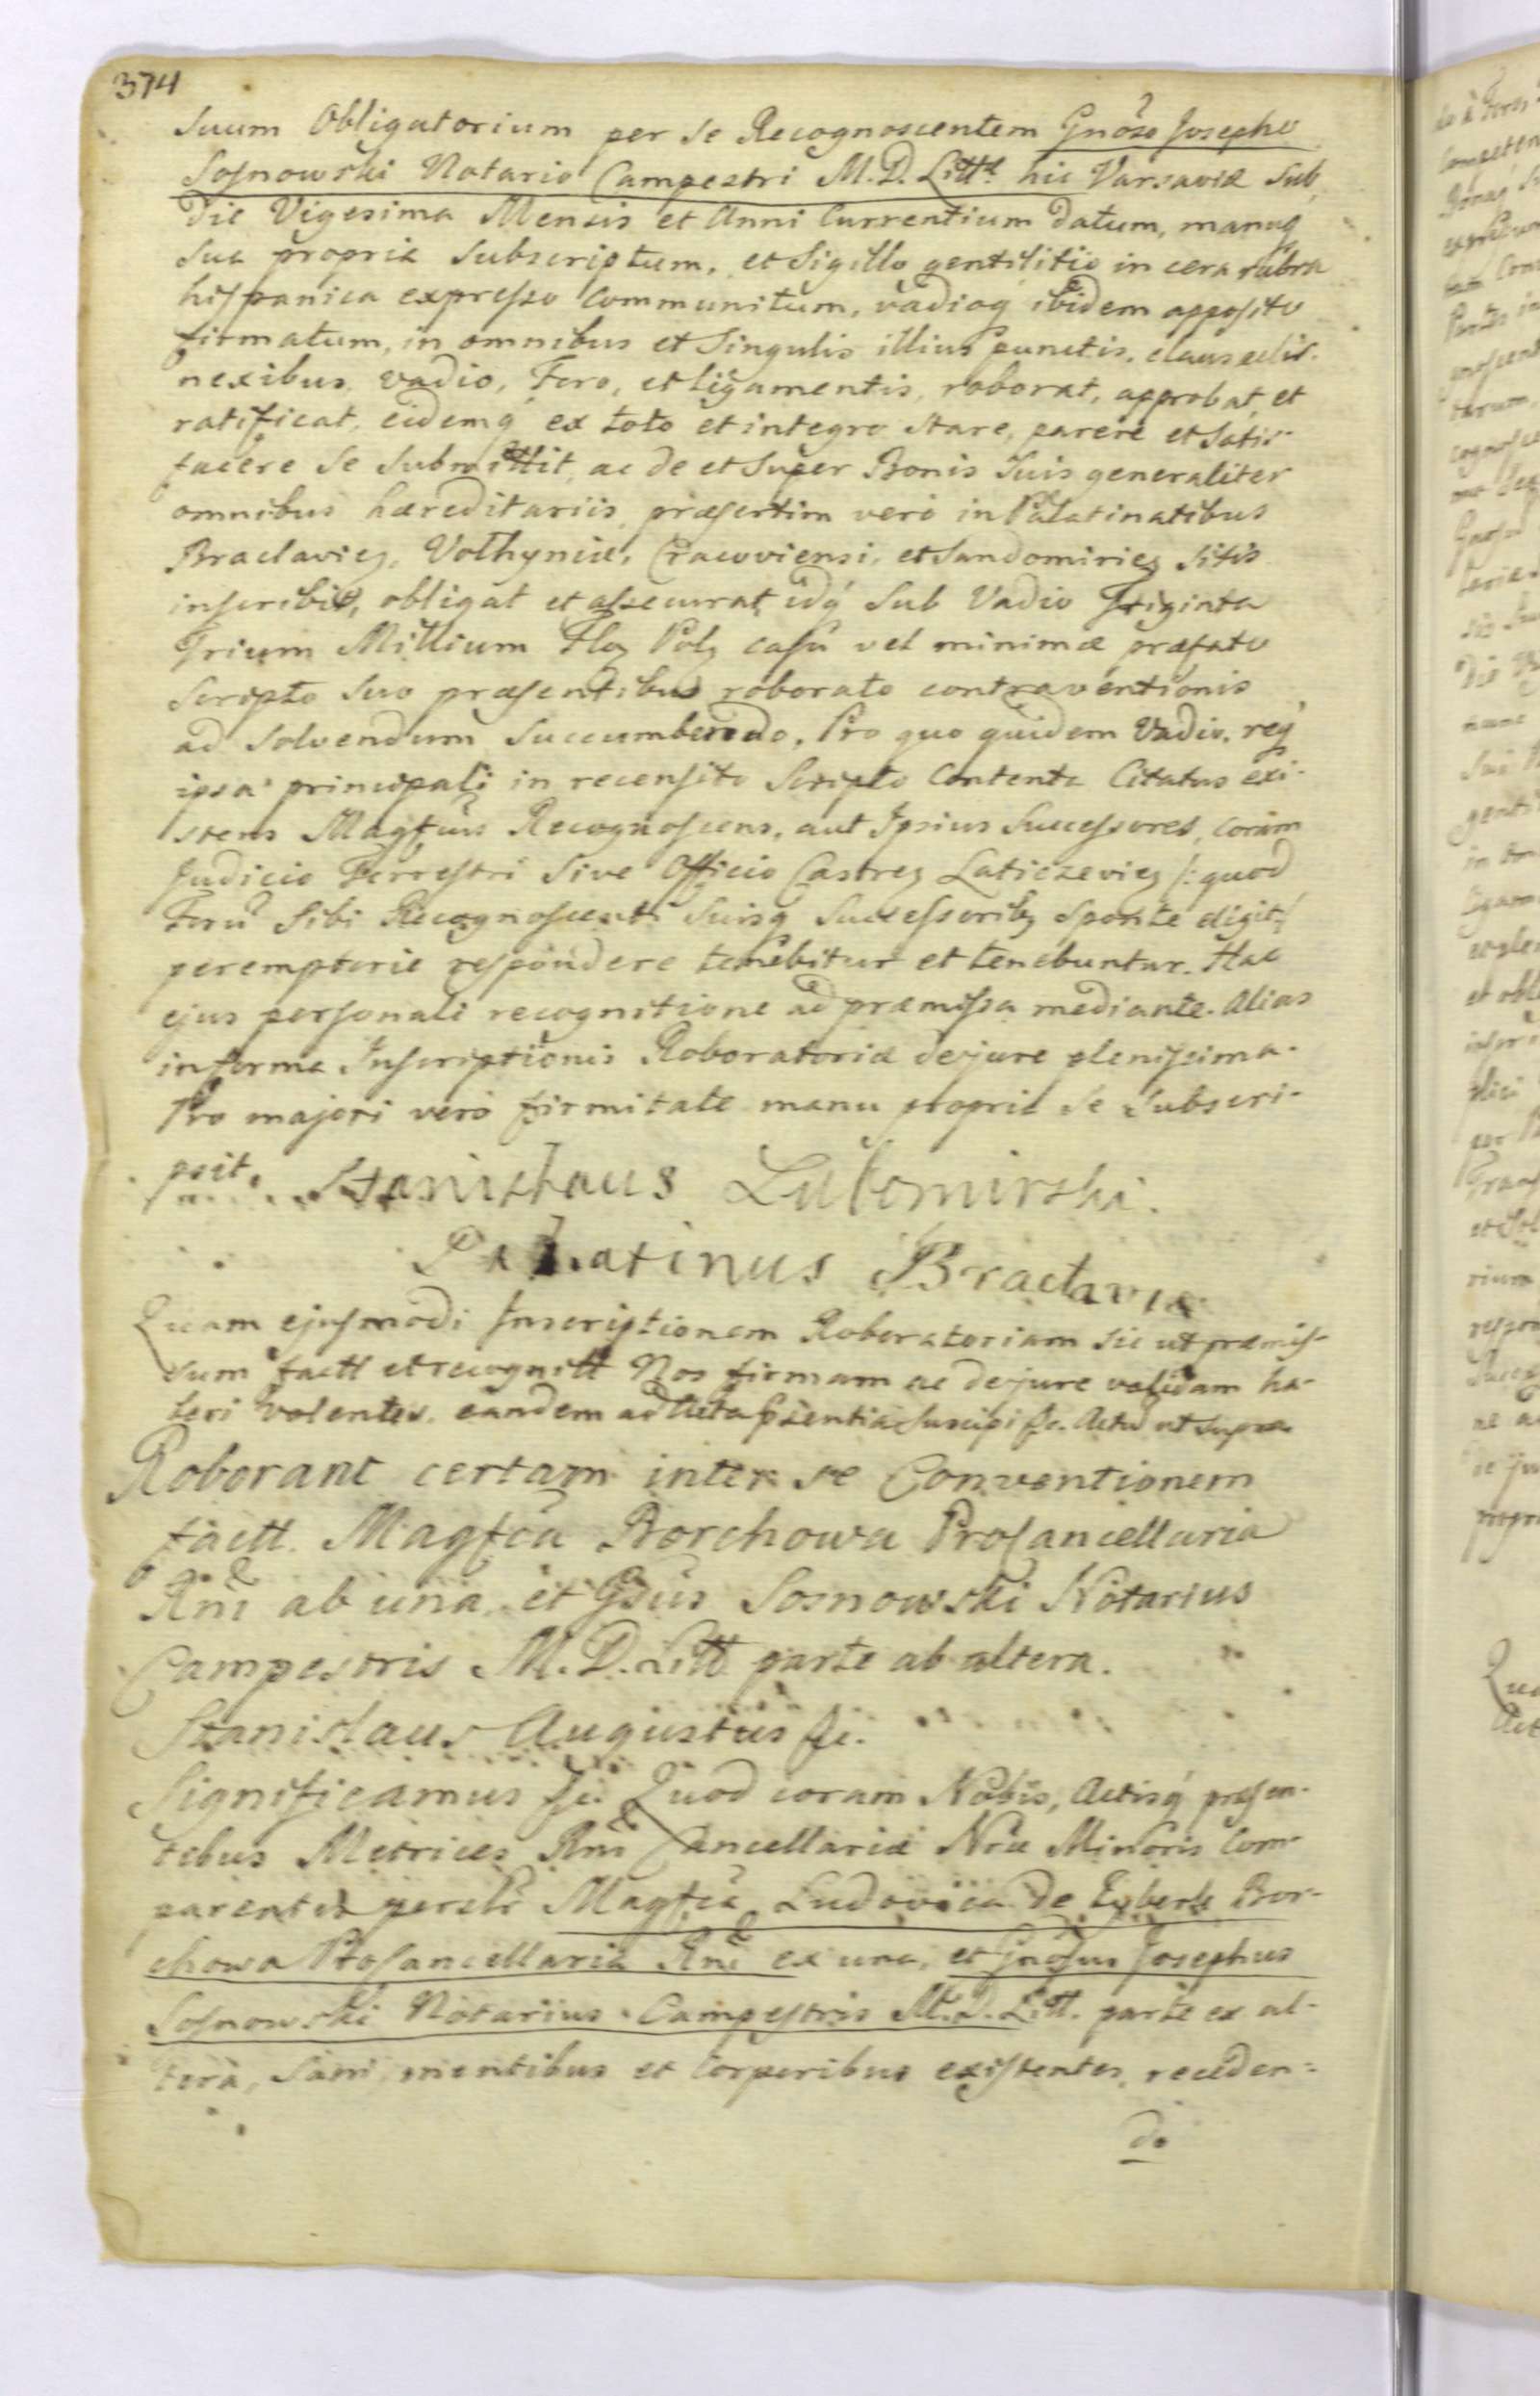 374
Suum Obligatorium per se Recognoscentem Gnoso Josepho
Sosnowski Notario Campestri M. D. Litt. hic Varsaviæ sub
die Vigesima Mensis et Anni Currentium datum, manuq
sua propria Subscriptum, et Sigillo gentilitio in cera rubra
hispanica expresso Communitum, vadioq ibidem apposito
firmatum, in omnibus et Singulis illius punctis, clausulis.
nexibus, vadio, Foro, et ligamentis, roborat, approbat, et
ratificat, eidemq ex toto et integro Stare, parere et Satis-
facere se submittit, ac de et Super Bonis Suis generaliter
omnibus hæreditariis, præsertim verò in Palatinatibus
Braclavien, Volhyniæ, Cracoviensi, et Sandomirien sitis
inscribit, obligat et assecurat, idq Sub Vadio Triginta
Trium Millium Flor Pol, casu vel minimæ præfato
Scripto Suo præsentibus roborato contraventionis
ad Solvendum Succumbendo. Pro quo quidem Vadio, req
ipsa principali in recensito Scripto Contenta Citatus exi-
stens Magfcus Recognoscens, aut Ipsius Successores, coram
Judicio Terrestri Sive Officio Castren Laticzevien /: quod
Foru Sibi Recognoscenti Suisq Successorib Sponte eligit,/
peremptorie respondere tenebitur et tenebuntur. Hac
ejus personali recognitione ad præmissa mediante. Alias
in forma Inscriptionis Roboratoriæ dejure plenissima.
Pro majori verò firmitate manu propria se Subscri-
psit. Stanislaus Lubomirski.
Palatinus Braclaviæ
Quam ejusmodi Inscriptionem Roboratoriam sic ut præmis-
sum factt et recognitt Nos firmam ac dejure validam ha-
beri volentes, eandem ad Acta pñentia suscipi fc. Actu ut supra
Roborant certam inter se Conventionem
factt. Magfca Borchowa Procancellaria
Rni ab una, et Gsus Sosnowski Notarius
Campestris M. D. Litt parte ab altera.
Stanislaus Augustus fc.
Significamus fc. Quod coram Nobis, Actisq præsen-
tibus Metrices Rni Cancellariæ Nræ Minoris Com-
parentes perslr Magfca Ludovica de Bor-
chowa Procancellaria Rni ex una, et Gnosus Josephus
Sosnowski Notarius Campestris M. D. Litt. parte ex al-
tera, Sani mentibus et Corporibus existentes, receden-
do